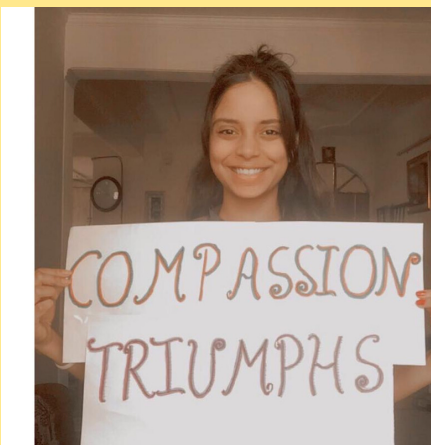 COMPASSION
TRIUMPHS